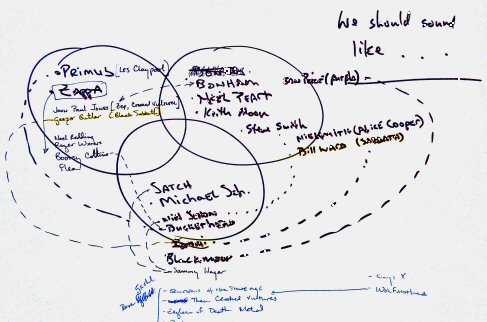 We should sound
like ....
PRIMUS (Les Claypool)
ZAPPA
John Paul Jones (Zep, Crooked Vultures)
Geezer Butler (Black Sabbath)
Noel Redding
Roger Waters
Bootsy Collins
Flea
BONHAM
NEEL PEART
Keith Moon
Steve Smith
IAN PAICE (PURPLE)
NEIL SMITH (ALICE COOPER)
Bill WARD (SABBATH)
SATCH
Michael Sch.
NIEL SCHON
BUCKETHEAD
Blackmore
Sammy Hagar
Queens of the Stone Age
Them Crooked Vultures
Eagles of Death Metal
Wolfmother